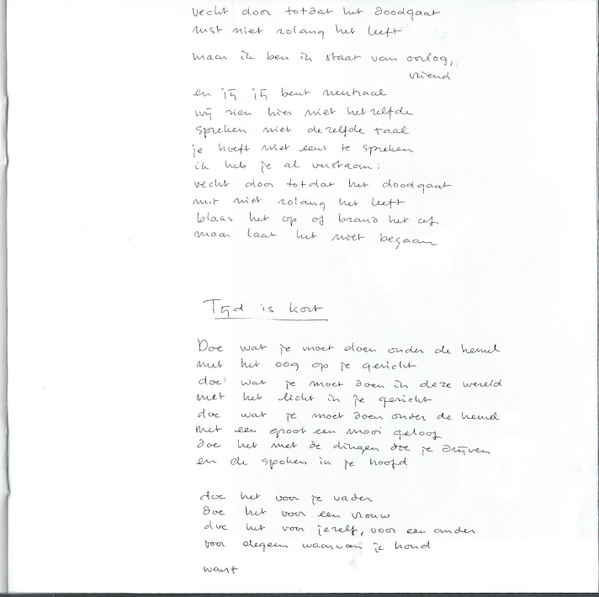 vecht door totdat het doodgaat
rust niet zolang het leeft
maar ik ben in staat van oorlog,
vriend
en jij jij bent neutraal
wij zien hier niet hetzelfde
spreken niet dezelfde taal
je hoeft niet eens te spreken
ik heb je al verstaan:
vecht door totdat het doodgaat
rust niet zolang het leeft
blaas het op of brand het af
maar laat het niet begaan
Tijd is kort
Doe wat je moet doen onder de hemel
met het oog op je gericht
doe wat je moet doen in deze wereld
met het licht in je gericht
doe wat je moet doen onder de hemel
met een groot een mooi geloof
doe het met de dingen die je drijven
en de spoken in je hoofd
doe het voor je vader
doe het voor een vrouw
doe het voor jezelf, voor een ander
voor diegeen waarvan je houd
want